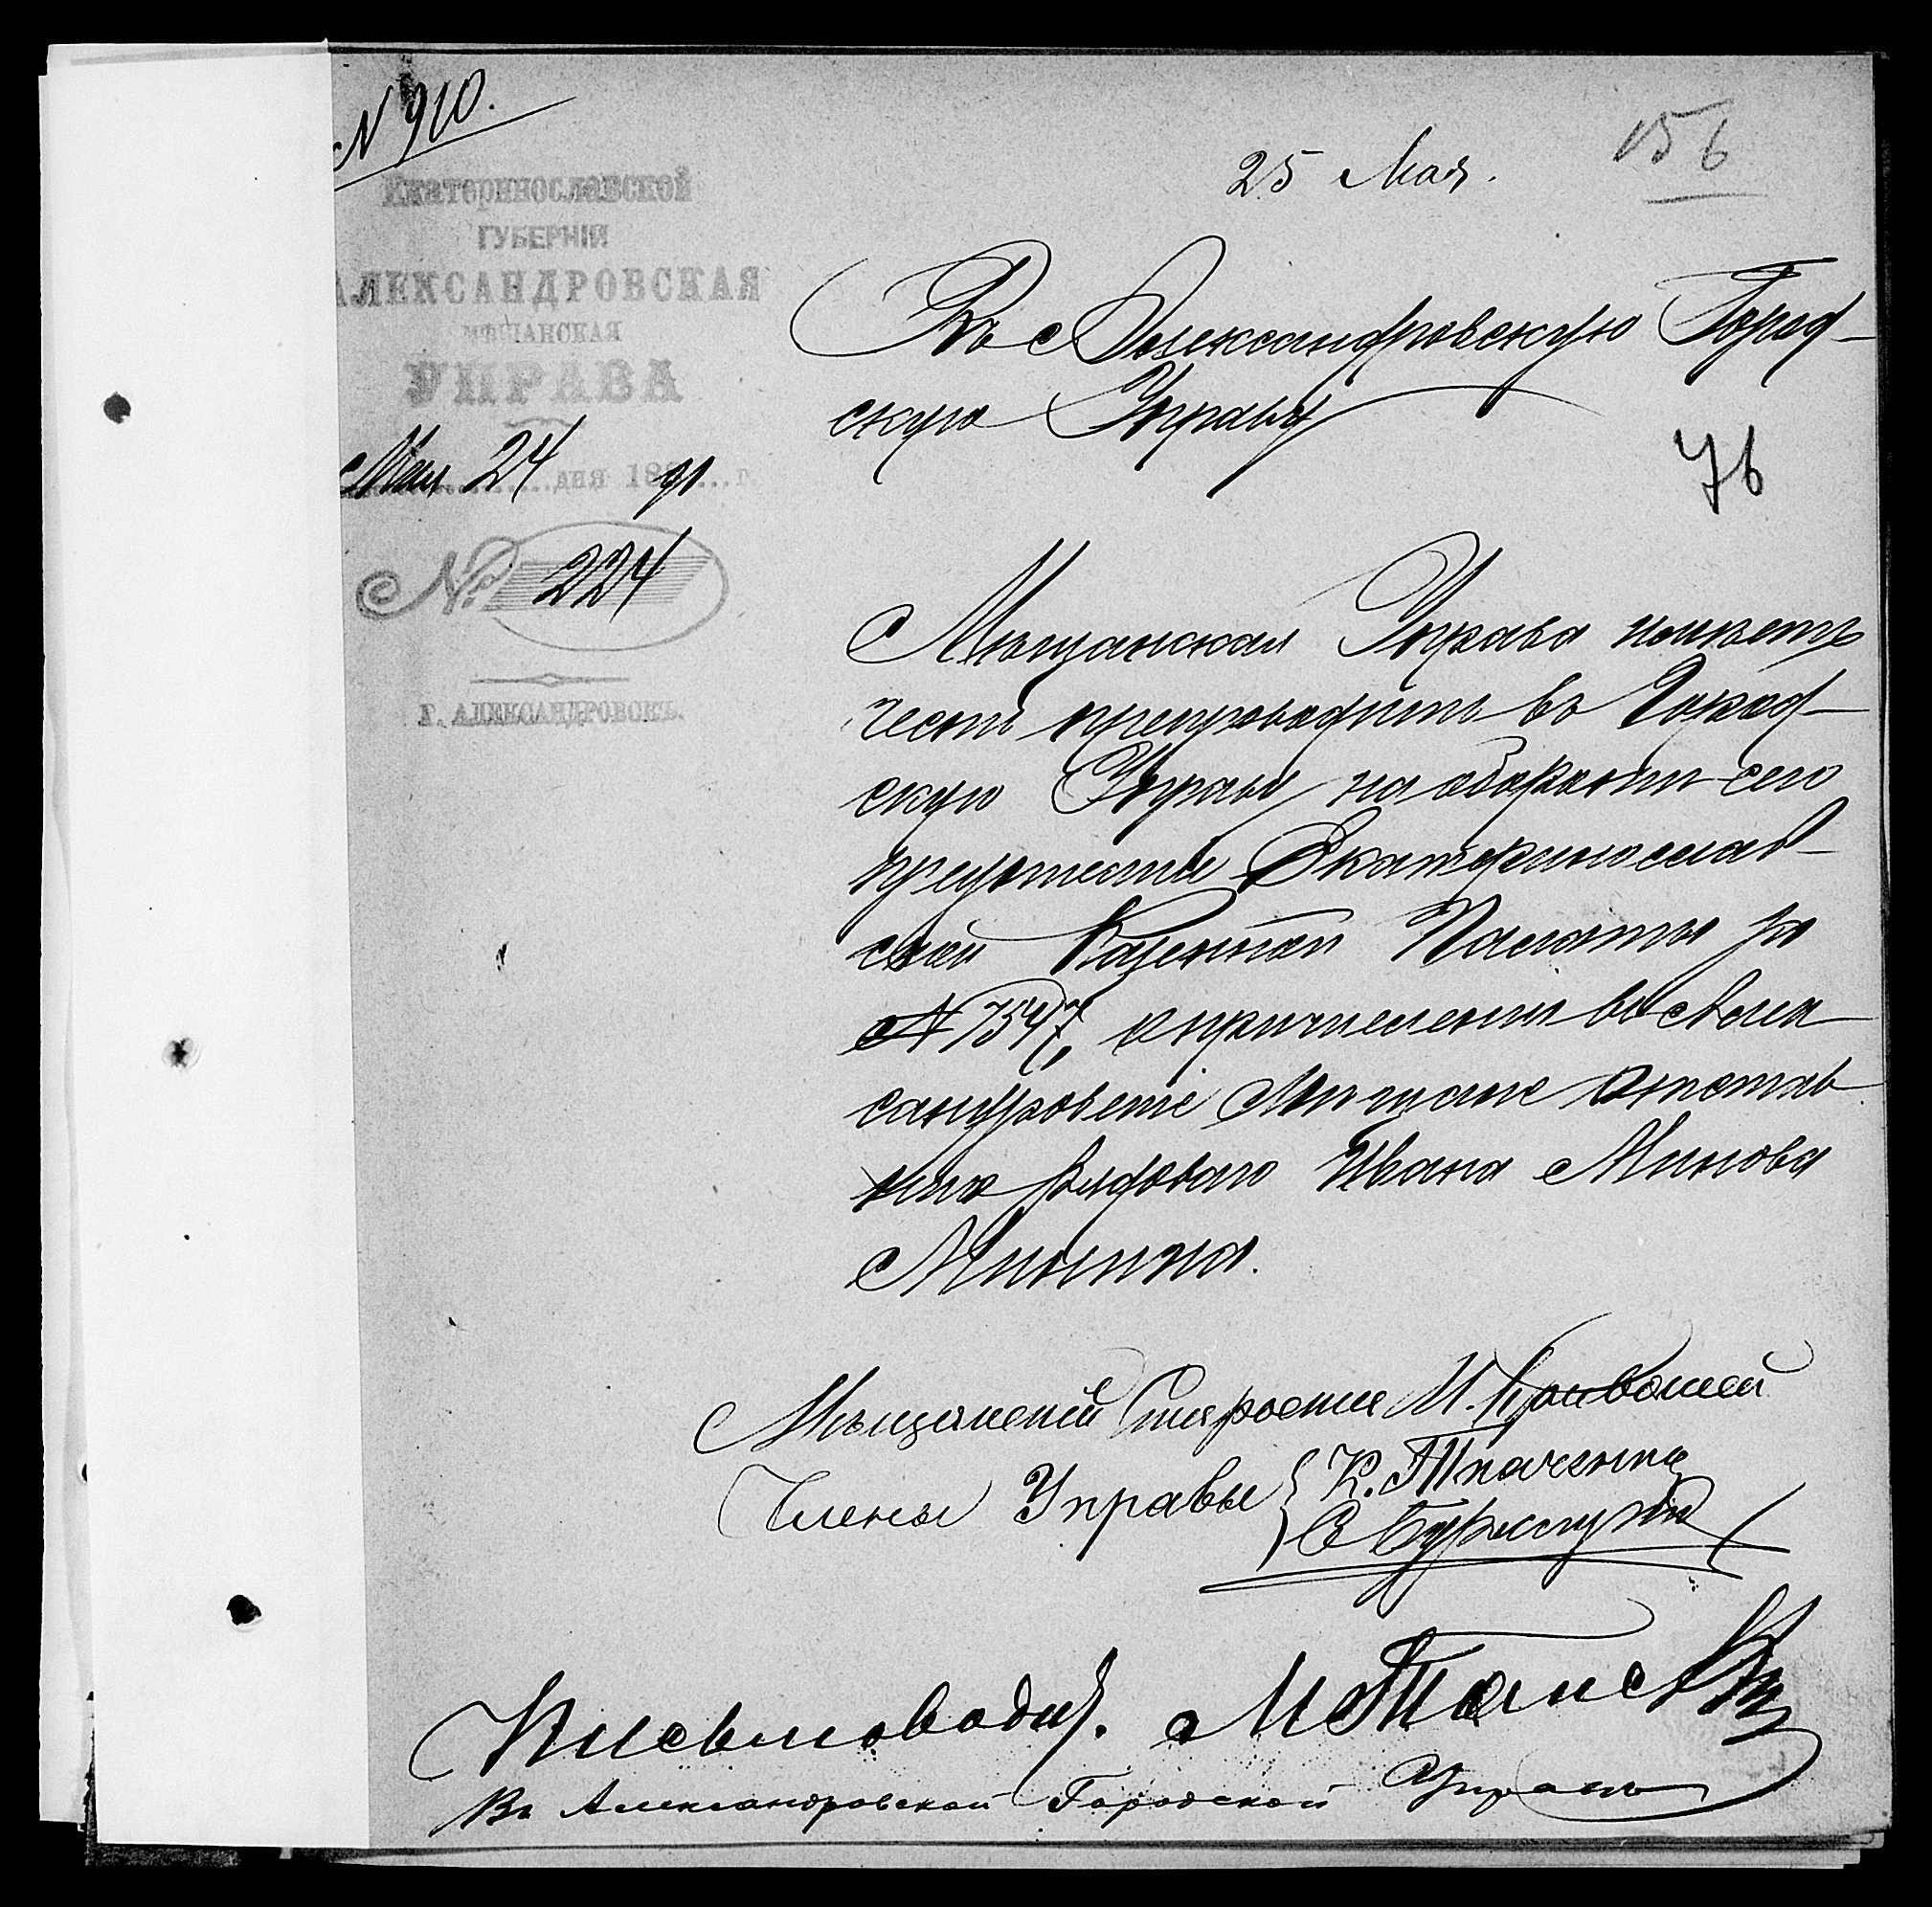 N 910.
156
25 Мая.
Екатеринославской
ГУБЕРНІИ
АЛЕКСАНДРОВСКАЯ
МѢЩАНСКАЯ
УПРАВА
Мая 24 дня 188 г.
№ 224
Г. АЛЕКСАНДРОВСКЪ.
Въ Александровскую Город-
скую Управу
76
Мѣщанская Управа имѣетъ
честь препроводить въ Город-
скую Управу на оборотѣ сего
Екатеринослав-
ской Казенной Палаты за
N 7547, о причисленіи въ Алек-
сандровскіе Мѣщане отстав-
рядового Ивана Минова
Минина.
Мѣщанскій Староста М. Кривошей
Члены Управы К. Ткаченко
Письмоводит.
Въ Александровской Городской Управѣ